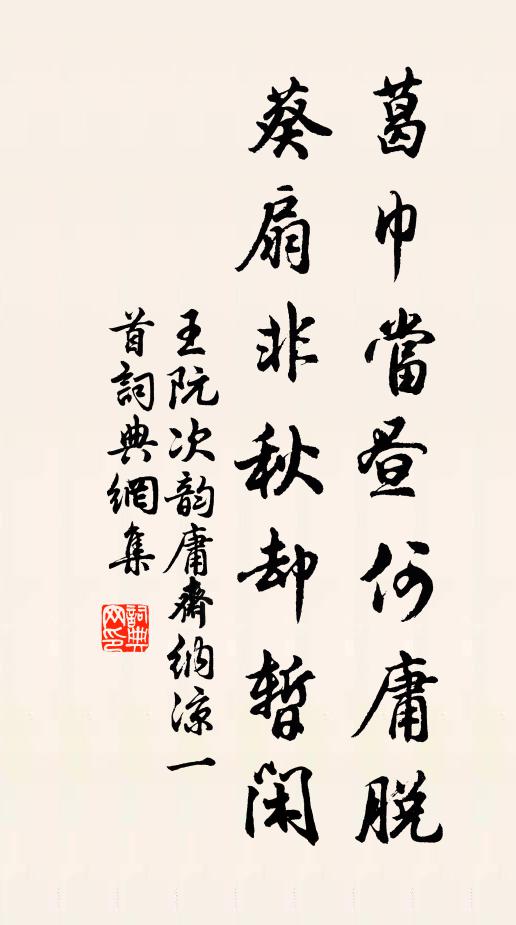 葛巾當昼何庸脱
葵扇非秋却暫閑
王阮次韵庸齋納凉一
首詞典網集
詞典網印